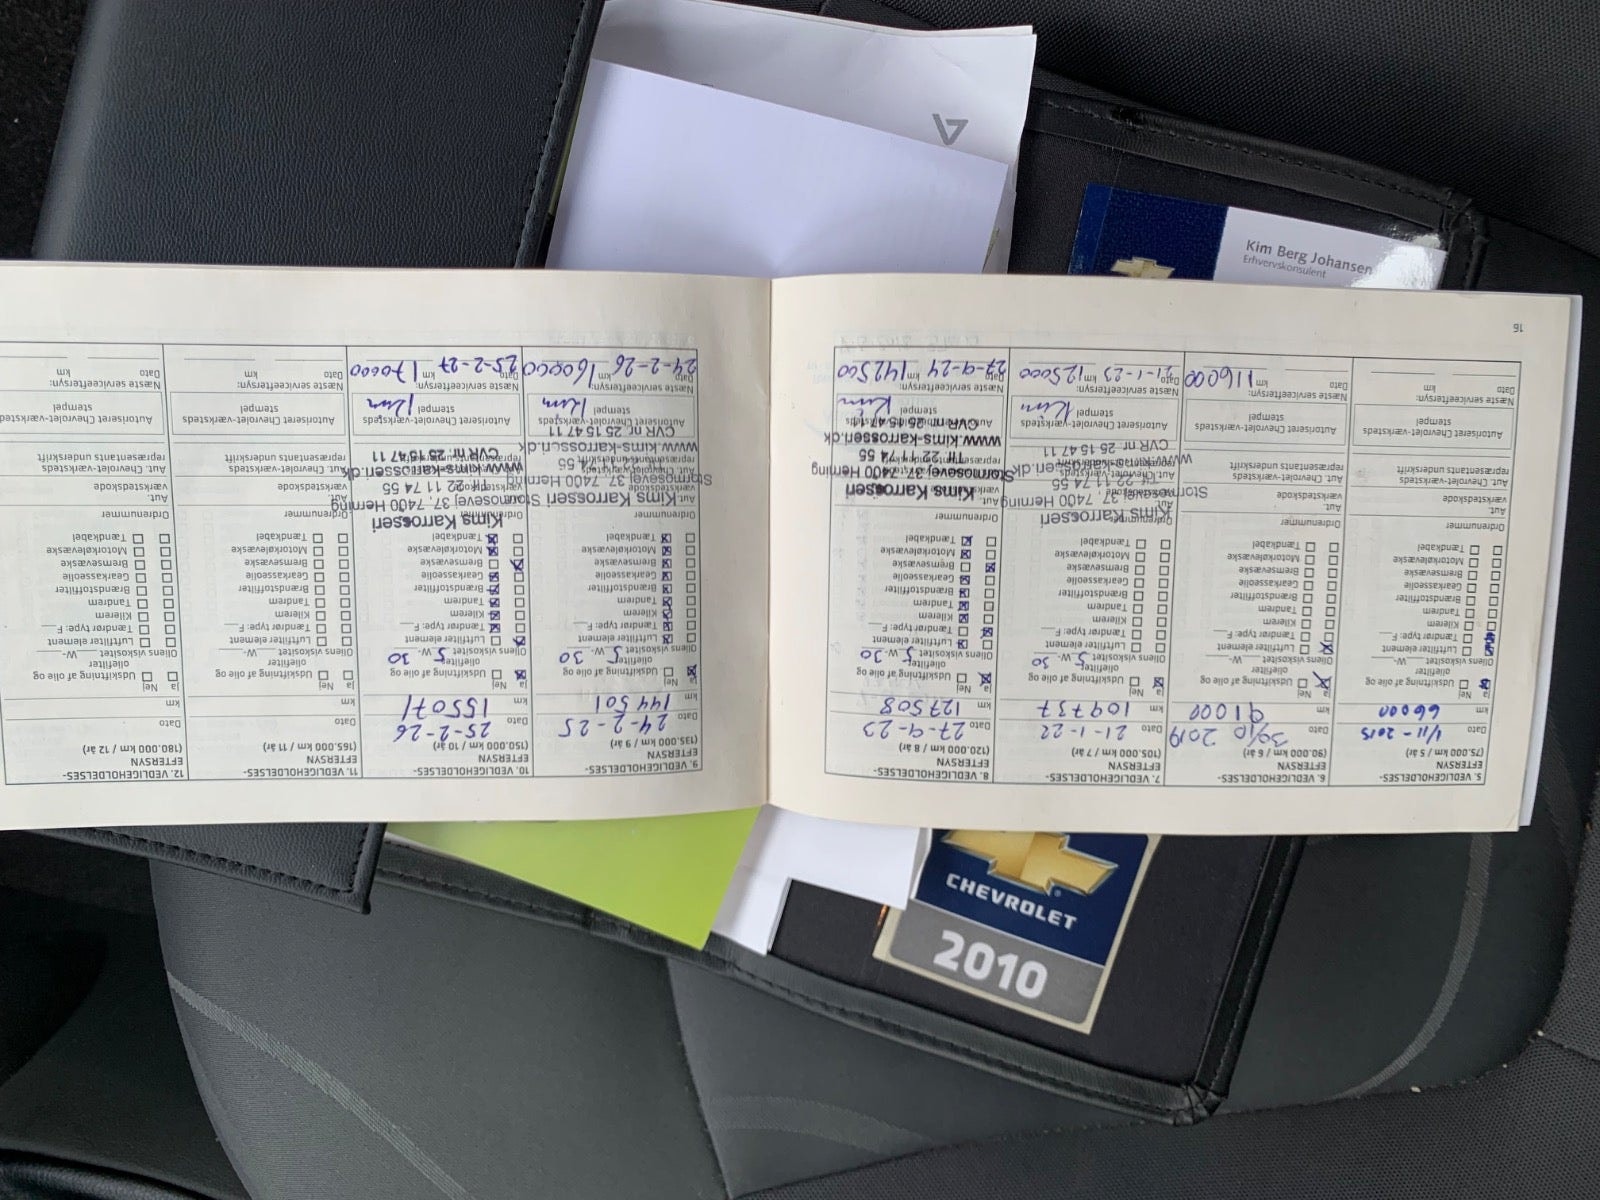 Kim Berg Johansen
Erhvervskonsulent
CHEVROLET
2010
16
5. VEDLIGEHOLDELSES-
EFTERSYN
(75.000 km / 5 år)
Dato 1/11-2015
km 66000
Ja Nej
Udskiftning af olie og
oliefilter
Oliens viskositet __W-__
Luftfilter element
Tændrør type: F__
Kilerem
Tandrem
Brændstoffilter
Gearkasseolie
Bremsevæske
Motorkølevæske
Tændkabel
Ordrenummer
Aut.
værkstedskode
Aut. Chevrolet-værksteds
repræsentants underskrift
Autoriseret Chevrolet-værksteds
stempel
Næste serviceeftersyn:
Dato km
6. VEDLIGEHOLDELSES-
EFTERSYN
(90.000 km / 6 år)
Dato 30/10 2019
km 91000
Ja Nej
Udskiftning af olie og
oliefilter
Oliens viskositet __W-__
Luftfilter element
Tændrør type: F__
Kilerem
Tandrem
Brændstoffilter
Gearkasseolie
Bremsevæske
Motorkølevæske
Tændkabel
Ordrenummer
Aut.
værkstedskode
Aut. Chevrolet-værksteds
repræsentants underskrift
Autoriseret Chevrolet-værksteds
stempel
Næste serviceeftersyn:
Dato km 116000
7. VEDLIGEHOLDELSES-
EFTERSYN
(105.000 km / 7 år)
Dato 21-1-22
km 109737
Ja Nej
Udskiftning af olie og
oliefilter
Oliens viskositet 5 W- 30
Luftfilter element
Tændrør type: F__
Kilerem
Tandrem
Brændstoffilter
Gearkasseolie
Bremsevæske
Motorkølevæske
Tændkabel
Ordrenummer
Kims Karrosseri
Stormosevej 37. 7400 Herning
Tlf. 22 11 74 55
www.kims-karrosseri.dk
CVR nr. 25 15 47 11
Autoriseret Chevrolet-værksteds
stempel Kim
Næste serviceeftersyn:
Dato 21-1-23 km 125000
8. VEDLIGEHOLDELSES-
EFTERSYN
(120.000 km / 8 år)
Dato 27-9-23
km 127508
Ja Nej
Udskiftning af olie og
oliefilter
Oliens viskositet 5 W- 30
Luftfilter element
Tændrør type: F__
Kilerem
Tandrem
Brændstoffilter
Gearkasseolie
Bremsevæske
Motorkølevæske
Tændkabel
Ordrenummer
Kims Karrosseri
Stormosevej 37. 7400 Herning
Tlf. 22 11 74 55
www.kims-karrosseri.dk
CVR nr. 25 15 47 11
stempel Kim
Næste serviceeftersyn:
Dato 27-9-24 km 142500
9. VEDLIGEHOLDELSES-
EFTERSYN
(135.000 km / 9 år)
Dato 24-2-25
km 144501
Ja Nej
Udskiftning af olie og
oliefilter
Oliens viskositet 5 W- 30
Luftfilter element
Tændrør type: F__
Kilerem
Tandrem
Brændstoffilter
Gearkasseolie
Bremsevæske
Motorkølevæske
Tændkabel
Ordrenummer
Kims Karrosseri
Stormosevej 37. 7400 Herning
Tlf. 22 11 74 55
www.kims-karrosseri.dk
CVR nr. 25 15 47 11
Autoriseret Chevrolet-værksteds
stempel Kim
Næste serviceeftersyn:
Dato 24-2-26 km 160000
10. VEDLIGEHOLDELSES-
EFTERSYN
(150.000 km / 10 år)
Dato 25-2-26
km 155071
Ja Nej
Udskiftning af olie og
oliefilter
Oliens viskositet 5 W- 30
Luftfilter element
Tændrør type: F__
Kilerem
Tandrem
Brændstoffilter
Gearkasseolie
Bremsevæske
Motorkølevæske
Tændkabel
Ordrenummer
Kims Karrosseri
Stormosevej 37. 7400 Herning
Tlf. 22 11 74 55
www.kims-karrosseri.dk
CVR nr. 25 15 47 11
Autoriseret Chevrolet-værksteds
stempel Kim
Næste serviceeftersyn:
Dato 25-2-27 km 170000
11. VEDLIGEHOLDELSES-
EFTERSYN
(165.000 km / 11 år)
Dato
km
Ja Nej
Udskiftning af olie og
oliefilter
Oliens viskositet __W-__
Luftfilter element
Tændrør type: F__
Kilerem
Tandrem
Brændstoffilter
Gearkasseolie
Bremsevæske
Motorkølevæske
Tændkabel
Ordrenummer
Aut.
værkstedskode
Aut. Chevrolet-værksteds
repræsentants underskrift
Autoriseret Chevrolet-værksteds
stempel
Næste serviceeftersyn:
Dato km
12. VEDLIGEHOLDELSES-
EFTERSYN
(180.000 km / 12 år)
Dato
km
Ja Nej
Udskiftning af olie og
oliefilter
Oliens viskositet __W-__
Luftfilter element
Tændrør type: F__
Kilerem
Tandrem
Brændstoffilter
Gearkasseolie
Bremsevæske
Motorkølevæske
Tændkabel
Ordrenummer
Aut.
værkstedskode
Aut. Chevrolet-værksteds
repræsentants underskrift
Autoriseret Chevrolet-værksteds
stempel
Næste serviceeftersyn:
Dato km